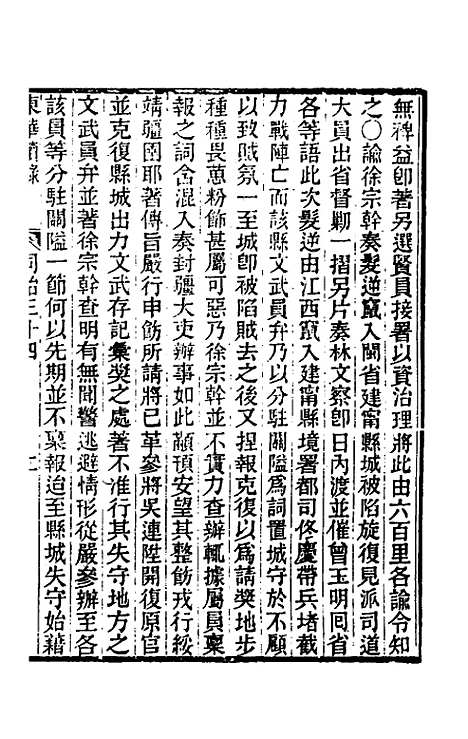 無裨益卽著另選賢員接署以資治理將此由六百里各諭令知
之〇諭徐宗幹奏髮逆竄入閩省建甯縣城被陷旋復見派司道
大員出省督勦一摺另片奏林文察卽日內渡並催曾玉明回省
各等語此次髮逆由江西竄入建甯縣境署都司佟慶帶兵堵截
力戰陣亡而該縣文武員弁乃以分駐關隘爲詞置城守於不顧
以致賊氛一至城卽被陷賊去之後又捏報克復以爲請奬地步
種種畏葸粉飾甚屬可惡乃徐宗幹並不實力查辦輒據屬員稟
報之詞含混入奏封疆大吏辦事如此顢頇安望其整飭戎行綏
靖疆圉耶著傳旨嚴行申飭所請將已革參將吳連陞開復原官
並克復縣城出力文武存記彙奬之處著不准行其失守地方之
文武員弁並著徐宗幹查明有無聞警逃避情形從嚴參辦至各
該員等分駐關隘一節何以先期並不稟報迨至縣城失守始藉
東華續錄 同治三十四